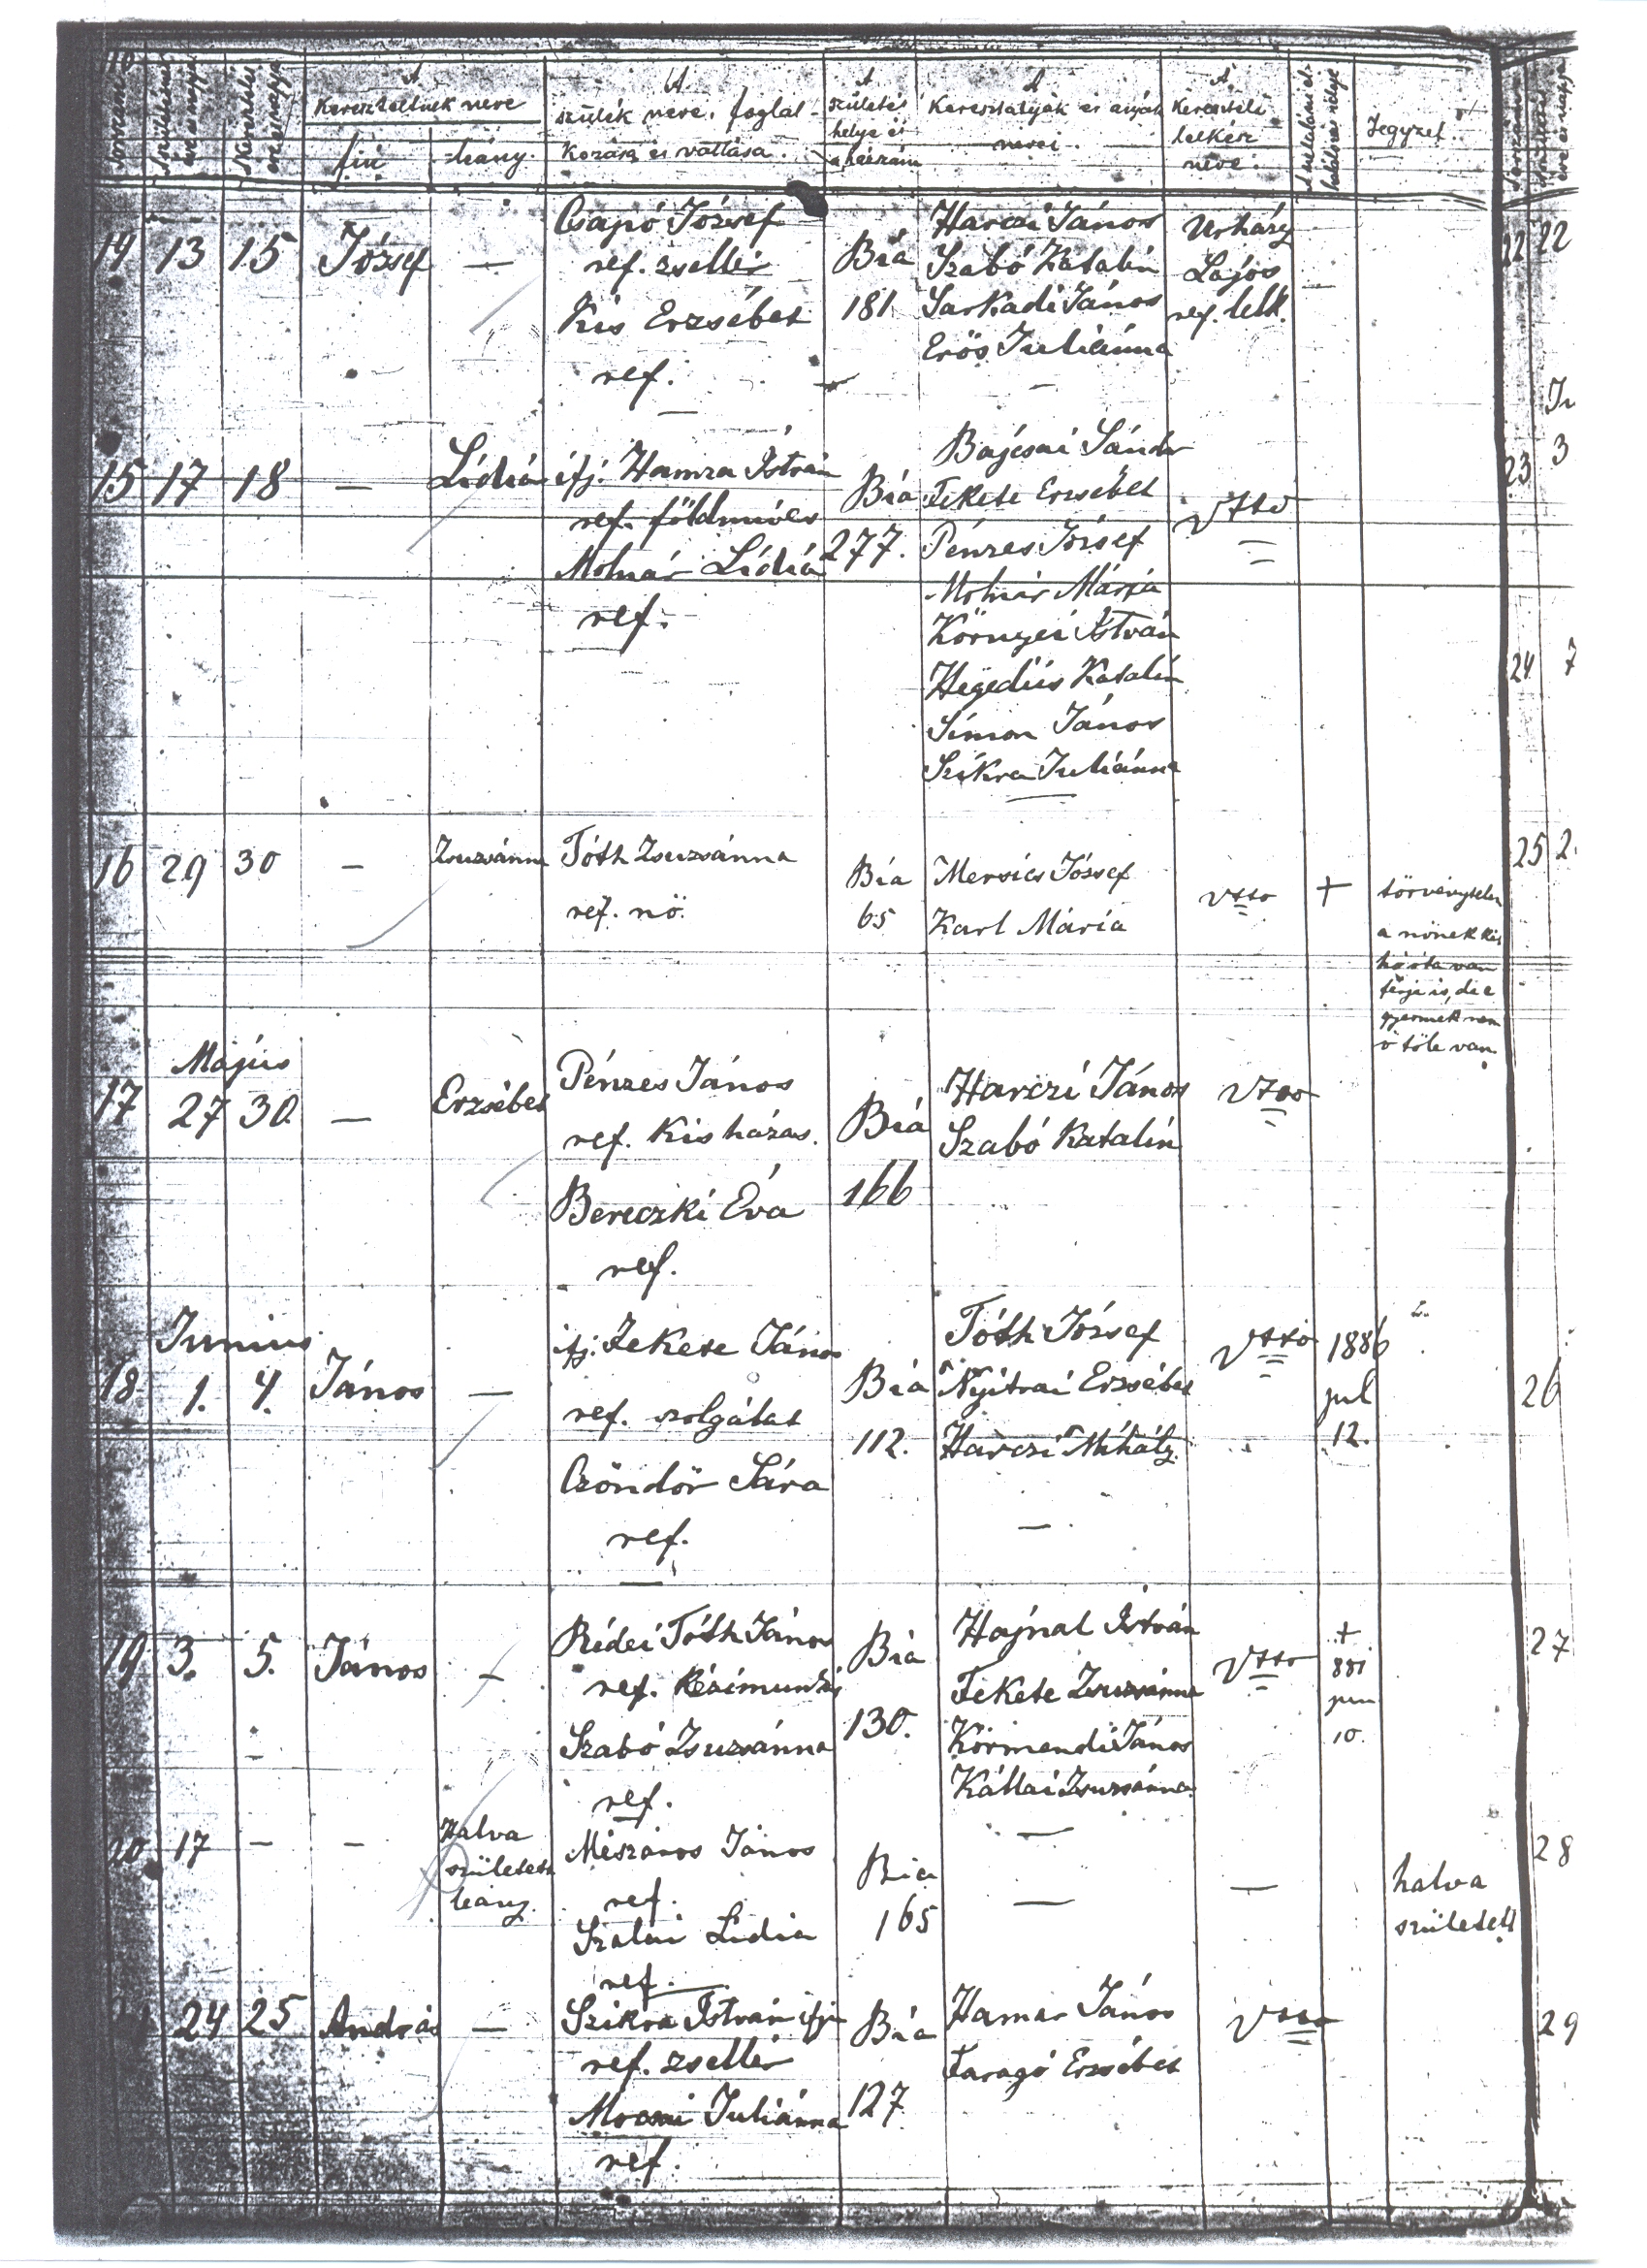 A
Kereszteltnek neve
fiú
leány.
A
szülék neve, foglal-
kozása és vallása.
A
születés
helye és
a házszám
A
Keresztatyák és anyák
nevei.
A
Keresztelő
lelkész
neve.
Jegyzet.
14 13 15 József —
Csapó József
ref. zsellér
Kis Erzsébet
ref.
Bia
181
Harczi János
Szabó Katalin
Sarkadi János
Erős Juliánna
Urházy
Lajos
ref. lelk.
—
22 22
15 17 18 — Lidia
ifj. Hamza István
ref. földmíves
Molnár Lidia
ref.
Bia
277.
Bajcsai Sándor
Fekete Erzsébet
Pénzes József
Molnár Mária
Környei István
Hegedüs Katalin
Simon János
Szikra Juliánna
Utto
23 3
24 7
16 29 30 — Zsuzsánna
Tóth Zsuzsánna
ref. nő.
Bia
65
Mersics József
Karl Mária
Utto
+
törvénytelen
a nőnek két
hó óta van
férje is, de e
gyermek nem
ő tőle van.
25 2
Május
17 27 30. — Erzsébet
Pénzes János
ref. Kisházas.
Bereczki Éva
ref.
Bia
166
Harczi János
Szabó Katalin
Utto
Junius
18. 1. 4. János —
ifj. Fekete János
ref. szolgálat
Czöndör Sára
ref.
Bia
112.
Tóth József
Nyitrai Erzsébet
Harczi Mihály
Utto
1886
jul
12.
26
19 3. 5. János —
Rédei Tóth János
ref. kézimunkás
Szabó Zsuzsánna
ref.
Bia
130.
Hajnal István
Fekete Zsuzsánna
Körmendi János
Kállai Zsuzsánna
Utto
+
881
jun
10.
27
20 17 — —
Halva
született
leány.
Mészáros János
ref.
Szalai Lidia
ref.
Bia
165
—
—
halva
született
28
24 25 András —
Szikra István ifj.
ref. zsellér
Mocsai Juliánna
ref.
Bia
127
Hamar János
Faragó Erzsébet
Utto
29